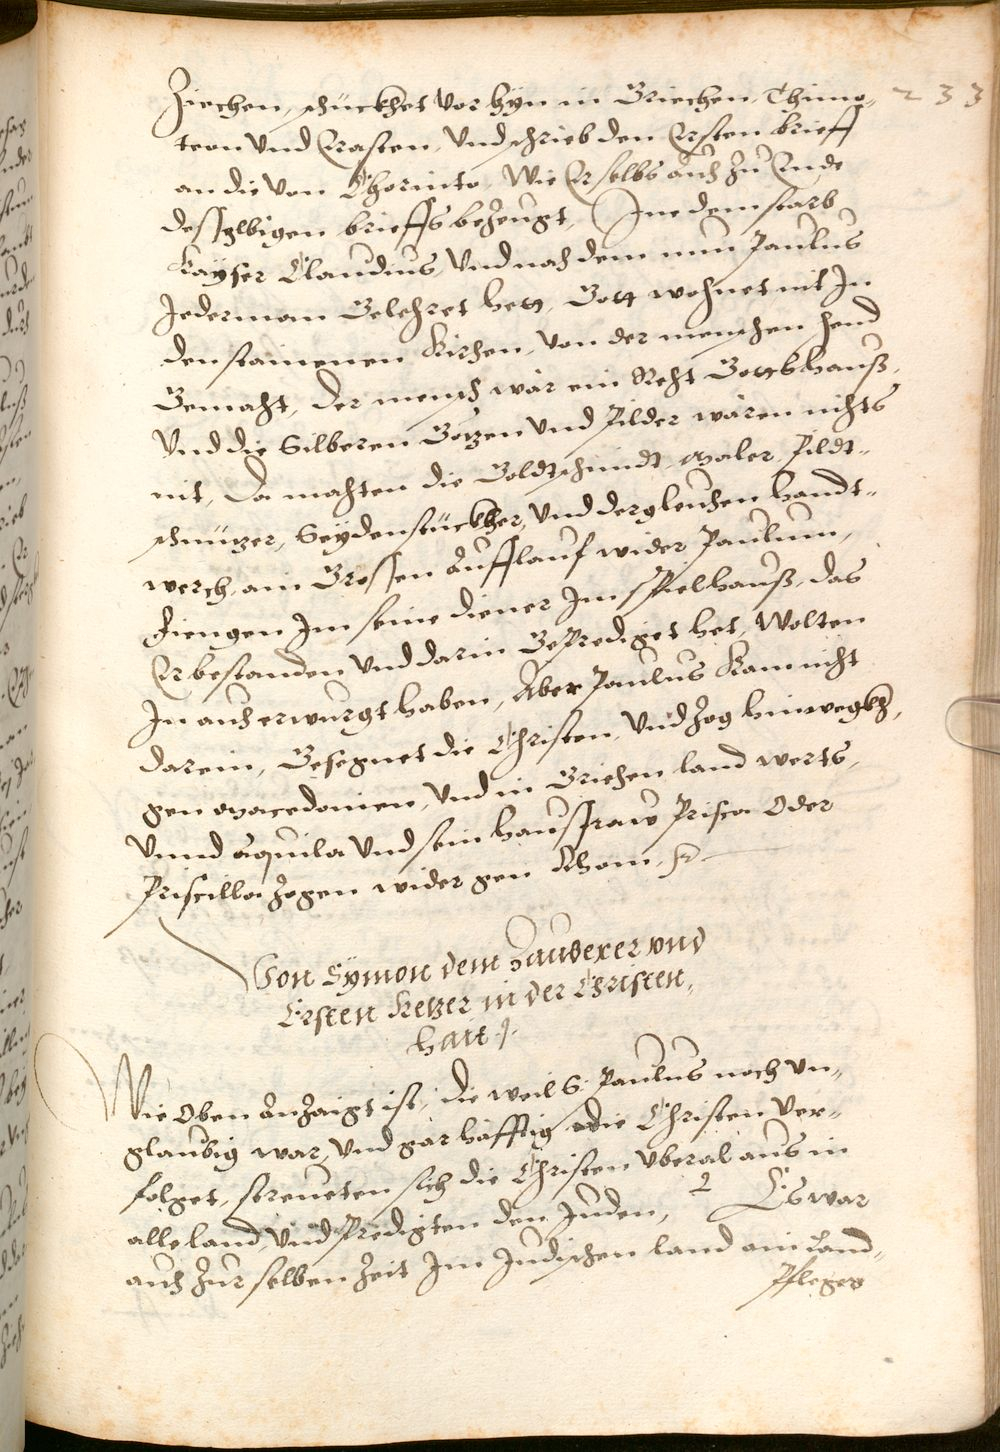 233
Ziechen, schückhet vor hyn in Griechen, Thimo„
teon Vnd Erasten, Vnd schrieb den Ersten brieff
an die von Chorinto, Wie Er selbs auch zu Ende
desselbigen brieffs bezeugt, Inn dem starb
Kayser Claudius, Vnd nach dem nun Paulus
Jederman Gelehret hett, Gott wohnet nit In
den stainenen Kirchen, von der menschen hend
Gemacht, der mensch wär ein Recht Gottshauß,
Vnd die Silberen Götzen Vnd Pilder wären nichts
nit, Da machten die Goldtschmidt, Maler, Pildt„
schnützer, Seydenstückher, Vnd dergleichen handt„
werch, ain Grossen Aufflauf wider Paulum,
fiengen Im seine diener Im Spielhauß, das
Er bestanden Vnd darin Geprediget het, Wolten
In auch erwurgt haben, Aber Paulus Kam nicht
darein, Gesegnet die Christen, Vnd zog hinwegkh,
gen Macedonien, Vnd in Griechen land werts,
Vnnd Aquila Vnd sein haussfraw Prisca Oder
Priscilla zogen wider gen Rhom
Von Symon dem Zauberer vnd
Ersten Ketzer in der Christen„
hait.
Wie Oben Anzaigt ist, die weil S: Paulus noch vn„
glaubig war, Vnd gar häfftig die Christen Ver„
folget, streueten sich die Christen Vberal aus in
alle land, Vnd Predigten den Juden, Es war
auch zur selben Zeit Im Judischen land ain Land„
Pfleger